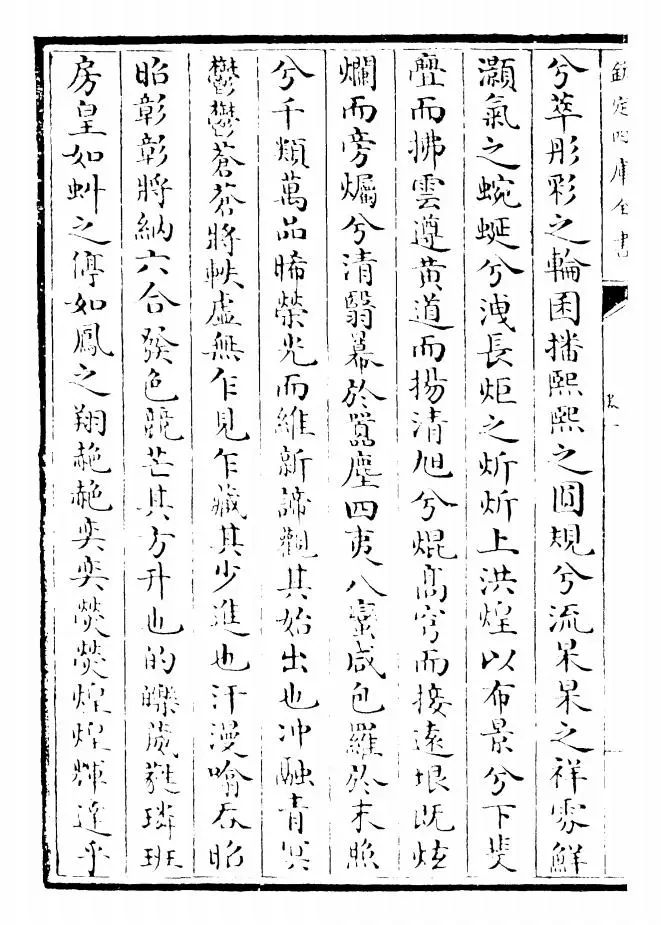 欽定四庫全書
卷一
兮萃彤彩之輪囷播熙熙之圓規兮流杲杲之祥雰鮮
灝氣之蜿蜒兮洩長炬之炘炘上洪煌以布景兮下斐
亹而拂雲遵黄道而揚清旭兮焜髙穹而接遠垠既炫
爛而旁煸兮清翳幕於嚣塵四夷八蠻咸包羅於末照
兮千類萬品晞榮光而維新諦觀其始出也冲融青冥
鬱鬱蒼蒼將軼虚無乍見乍藏其少進也汗漫噏吞昭
昭彰彰將納六合發色競芒其方升也的皪葳蕤璘班
房皇如虯之停如鳳之翔赩赩奕奕熒熒煌煌輝逹乎